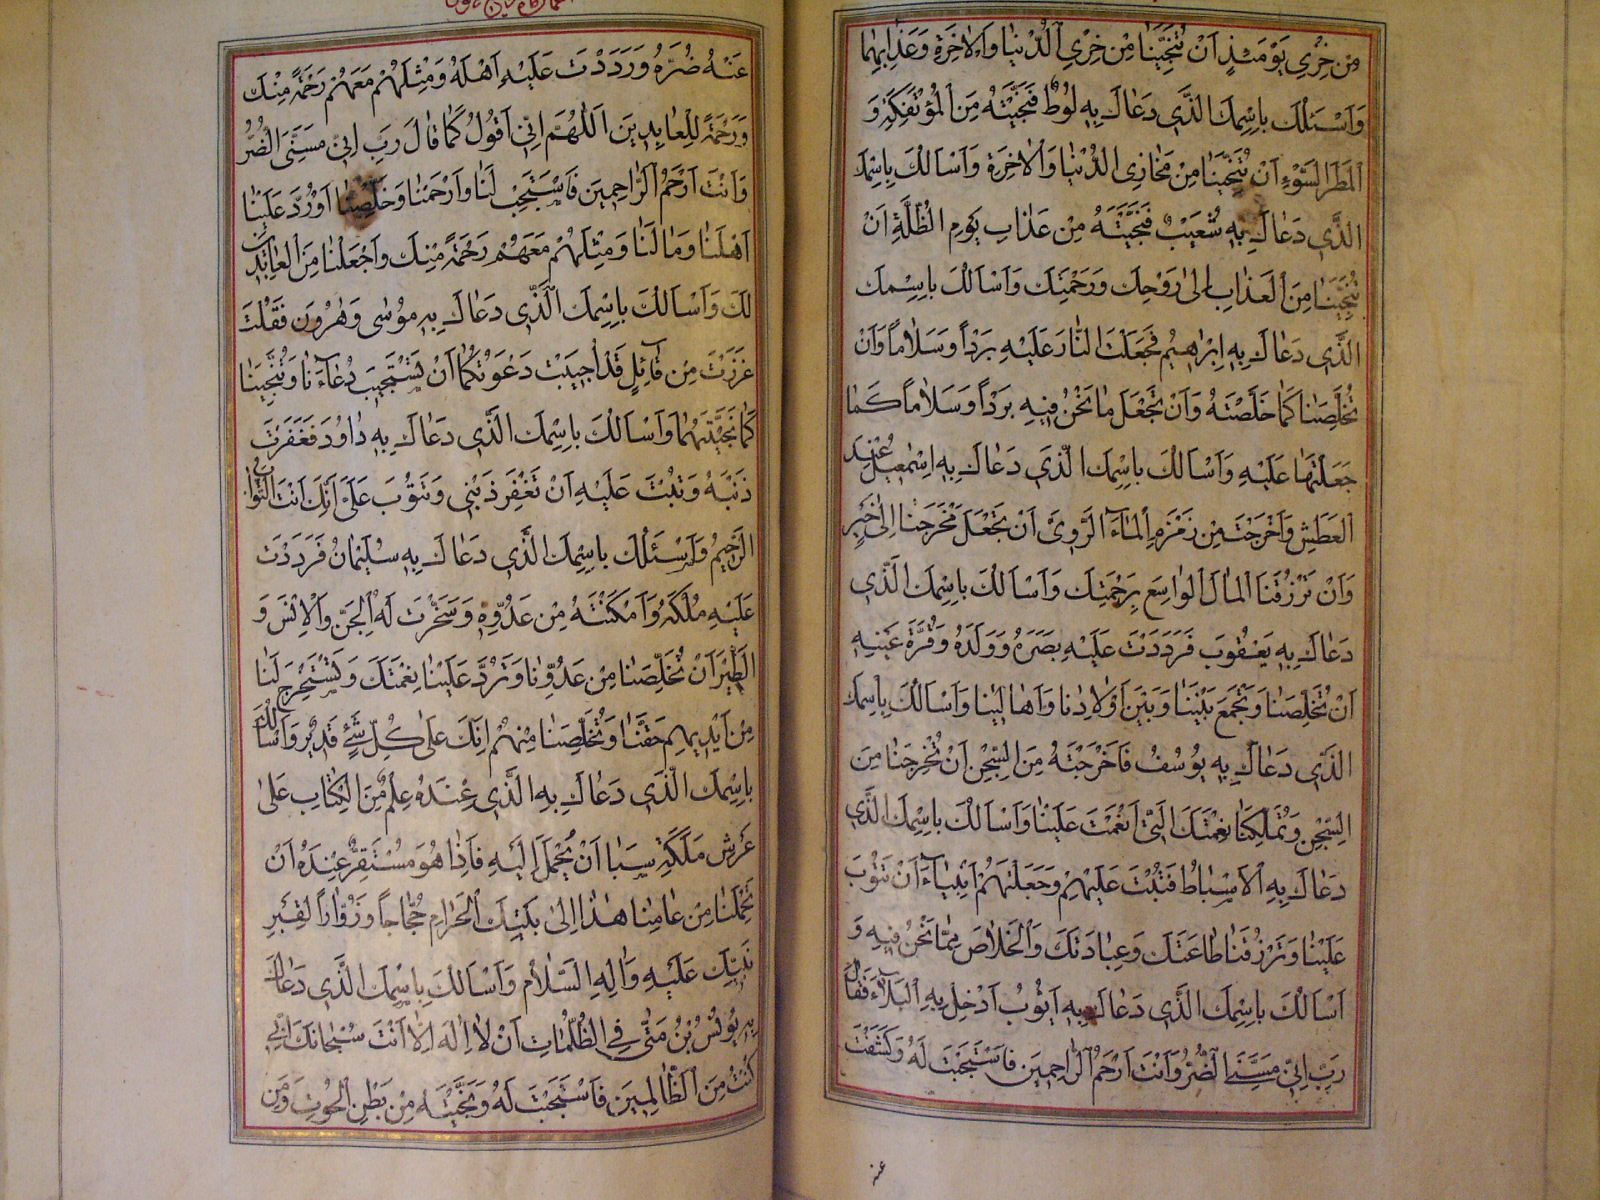 مِنْ خِزْيِ يَوْمَئِذٍ اَنْ تُنْجِيَنَا مِنْ خِزْيِ الدُّنْيَا وَالْاٰخِرَةِ وَعَذَابِهِمَا
وَاَسْئَلُكَ بِاسْمِكَ الَّذِي دَعَاكَ بِهِ لُوطٌ فَنَجَّيْتَهُ مِنَ الْمُؤْتَفِكَةِ وَ
الْمَطَرِ السَّوْءِ اَنْ تُنْجِيَنَا مِنْ مَخَازِي الدُّنْيَا وَالْاٰخِرَةِ وَاَسْاَلُكَ بِاسْمِكَ
الَّذِي دَعَاكَ بِهِ شُعَيْبٌ فَنَجَّيْتَهُ مِنْ عَذَابِ يَوْمِ الظُّلَّةِ اَنْ
تُنْجِيَنَا مِنَ الْعَذَابِ اِلٰى رَوْحِكَ وَرَحْمَتِكَ وَاَسْاَلُكَ بِاسْمِكَ
الَّذِي دَعَاكَ بِهِ اِبْرٰهِيمُ فَجَعَلْتَ النَّارَ عَلَيْهِ بَرْداً وَسَلَاماً وَاَنْ
تُخَلِّصَنَا كَمَا خَلَّصْتَهُ وَاَنْ تَجْعَلَ مَا نَحْنُ فِيهِ بَرْداً وَسَلَاماً كَمَا
جَعَلْتَهَا عَلَيْهِ وَاَسْاَلُكَ بِاسْمِكَ الَّذِي دَعَاكَ بِهِ اِسْمٰعِيلُ عِنْدَ
الْعَطَشِ وَاَخْرَجْتَ مِنْ زَمْزَمِ الْمَاءَ الرَّوِىَّ اَنْ تَجْعَلَ مَخْرَجَنَا اِلٰى خَيْرٍ
وَاَنْ تَرْزُقَنَا الْمَالَ الْوَاسِعَ بِرَحْمَتِكَ وَاَسْاَلُكَ بِاسْمِكَ الَّذِي
دَعَاكَ بِهِ يَعْقُوبَ فَرَدَدْتَ عَلَيْهِ بَصَرَهُ وَوَلَدَهُ وَقُرَّةَ عَيْنِهِ
اَنْ تُخَلِّصَنَا وَتَجْمَعَ بَيْنَنَا وَبَيْنَ اَوْلَادِنَا وَاَهَالِينَا وَاَسْاَلُكَ بِاسْمِكَ
الَّذِي دَعَاكَ بِهِ يُوسُفُ فَاَخْرَجْتَهُ مِنَ السِّجْنِ اَنْ تُخْرِجَنَا مِنَ
السِّجْنِ وَتُمَلِّكَنَا نِعْمَتَكَ الَّتِي اَنْعَمْتَ عَلَيْنَا وَاَسْاَلُكَ بِاسْمِكَ الَّذِي
دَعَاكَ بِهِ الْاَسْبَاطُ فَتُبْتَ عَلَيْهِمْ وَجَعَلْتَهُمْ اَنْبِيَاءَ اَنْ تَتُوبَ
عَلَيْنَا وَتَرْزُقَنَا طَاعَتَكَ وَعِبَادَتَكَ وَالْخَلَاصَ مِمَّا نَحْنُ فِيهِ وَ
اَسْاَلُكَ بِاسْمِكَ الَّذِي دَعَاكَ بِهِ اَيُّوبُ اَدْخِلْ بِهِ الْبَلَاءَ فَقَالَ
رَبِّ اِنِّي مَسَّنِيَ الضُّرُّ وَاَنْتَ اَرْحَمُ الرَّاحِمِينَ فَاسْتَجَبْتَ لَهُ وَكَشَفْتَ
عنه
عَنْهُ ضُرَّهُ وَرَدَدْتَ عَلَيْهِ اَهْلَهُ وَمِثْلَهُمْ مَعَهُمْ رَحْمَةً مِنْكَ
وَرَحْمَةً لِلْعَابِدِينَ اَللّٰهُمَّ اِنِّي اَقُولُ كَمَا قَالَ رَبِّ اِنِّي مَسَّنِيَ الضُّرُّ
وَاَنْتَ اَرْحَمُ الرَّاحِمِينَ فَاسْتَجِبْ لَنَا وَارْحَمْنَا وَخَلِّصْنَا وَرُدَّ عَلَيْنَا
اَهْلَنَا وَمَالَنَا وَمِثْلَهُمْ مَعَهُمْ رَحْمَةً مِنْكَ وَاجْعَلْنَا مِنَ الْعَابِدِينَ
لَكَ وَاَسْاَلُكَ بِاسْمِكَ الَّذِي دَعَاكَ بِهِ مُوسٰى وَهٰرُونَ فَقُلْتَ
عَزَزْتَ مِنْ قَائِلٍ قَدْ اُجِيبَتْ دَعْوَتُكُمَا اَنْ تَسْتَجِيبَ دُعَاءَنَا وَتُنْجِيَنَا
كَمَا نَجَّيْتَهُمَا وَاَسْاَلُكَ بِاسْمِكَ الَّذِي دَعَاكَ بِهِ دَاوُدَ فَغَفَرْتَ
ذَنْبَهُ وَتُبْتَ عَلَيْهِ اَنْ تَغْفِرَ ذَنْبِي وَتَتُوبَ عَلَيَّ اِنَّكَ اَنْتَ التَّوَّابُ
الرَّحِيمُ وَاَسْئَلُكَ بِاسْمِكَ الَّذِي دَعَاكَ بِهِ سُلَيْمَانُ فَرَدَدْتَ
عَلَيْهِ مُلْكَهُ وَاَمْكَنْتَهُ مِنْ عَدُوِّهِ وَسَخَّرْتَ لَهُ الْجِنَّ وَالْاِنْسَ وَ
الطَّيْرَ اَنْ تُخَلِّصَنَا مِنْ عَدُوِّنَا وَتَرُدَّ عَلَيْنَا نِعْمَتَكَ وَتَسْتَخْرِجَ لَنَا
مِنْ اَيْدِيهِمْ حَقَّنَا وَتُخَلِّصَنَا مِنْهُمْ اِنَّكَ عَلٰى كُلِّ شَيْءٍ قَدِيرٌ وَاَسْاَلُكَ
بِاسْمِكَ الَّذِي دَعَاكَ بِهِ الَّذِي عِنْدَهُ عِلْمٌ مِنَ الْكِتَابِ عَلٰى
عَرْشِ مَلِكَةِ سَبَا اَنْ يُحْمَلَ اِلَيْهِ فَاِذَا هُوَ مُسْتَقِرٌّ عِنْدَهُ اَنْ
تَحْمِلَنَا مِنْ عَامِنَا هٰذَا اِلٰى بَيْتِكَ الْحَرَامِ حُجَّاجاً وَزُوَّاراً لِقَبْرِ
نَبِيِّكَ عَلَيْهِ وَاٰلِهِ السَّلَامُ وَاَسْاَلُكَ بِاسْمِكَ الَّذِي دَعَاكَ
بِهِ يُونُسُ بْنُ مَتّٰى فِي الظُّلُمَاتِ اَنْ لَا اِلٰهَ اِلَّا اَنْتَ سُبْحَانَكَ اِنِّي
كُنْتُ مِنَ الظَّالِمِينَ فَاسْتَجَبْتَ لَهُ وَنَجَّيْتَهُ مِنْ بَطْنِ الْحُوتِ وَمِنَ